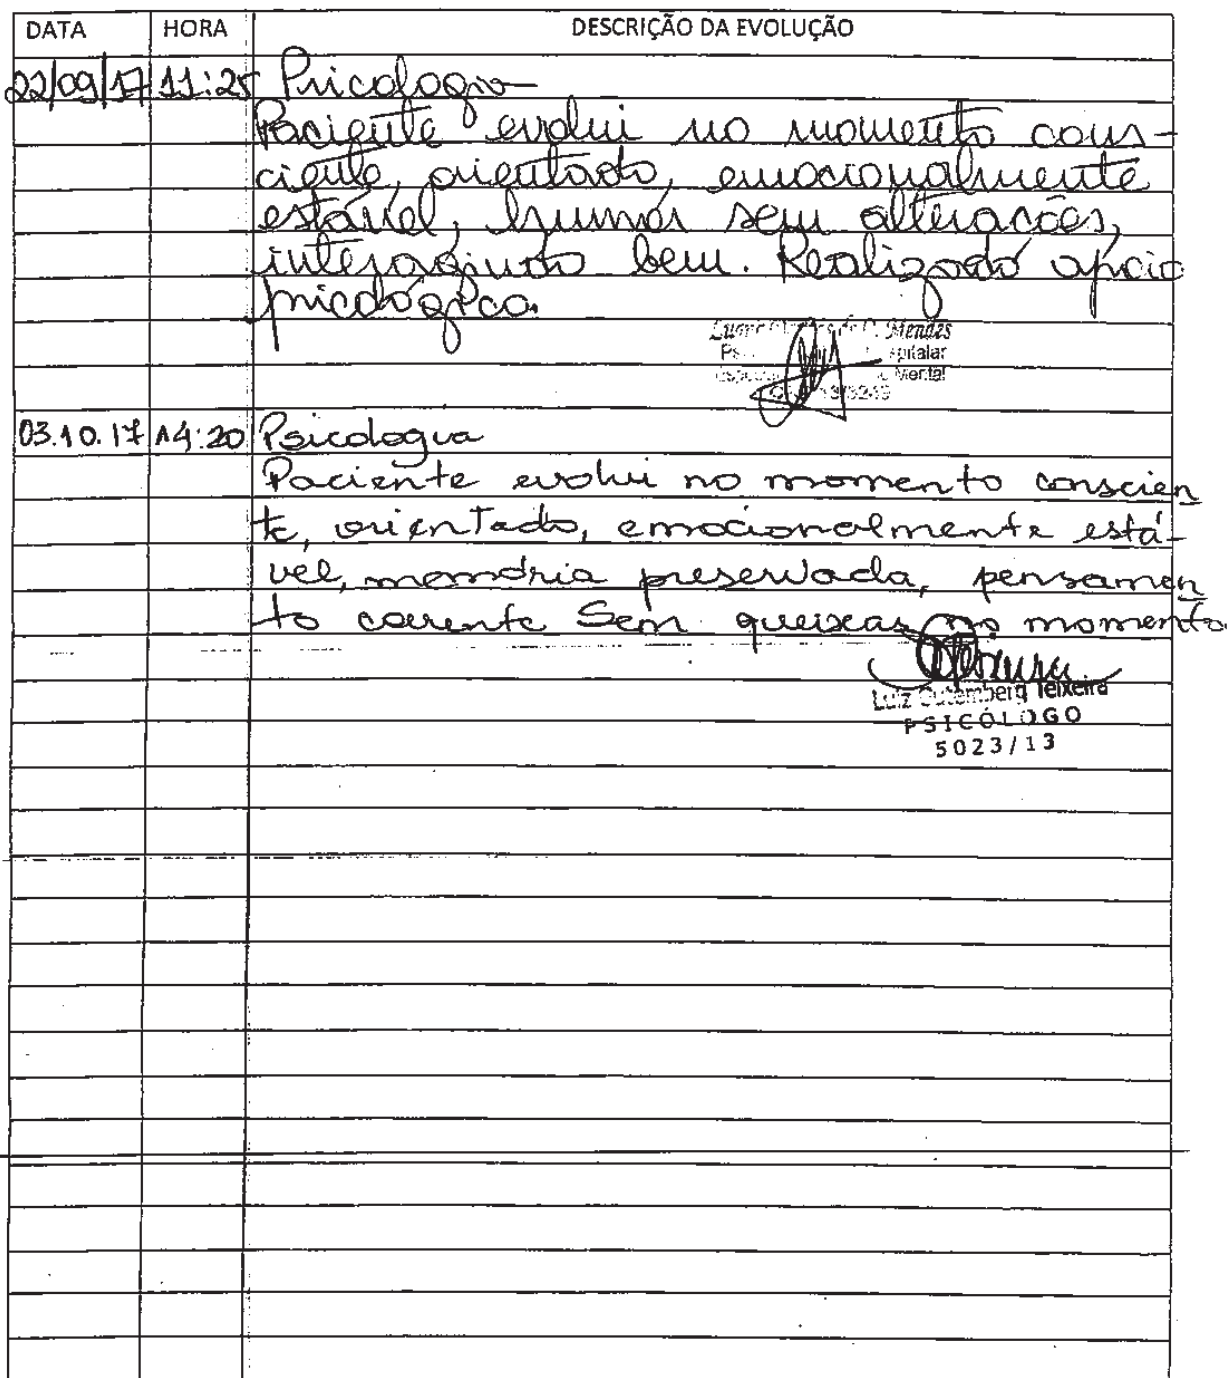 DATA HORA DESCRIÇÃO DA EVOLUÇÃO
22/09/17 11:25 Psicologia
Paciente evolui no momento cons-
ciente, orientado, emocionalmente
estável, humor sem alterações,
interagindo bem. Realizado apoio
psicológico.
Mendes
Mental
03.10.17 14:20 Psicologia
Paciente evolui no momento conscien
te, orientado, emocionalmente está-
vel, memória preservada, pensamen
to coerente Sem queixas no momento.
Luiz Gutemberg Teixeira
PSICÓLOGO
5023/13